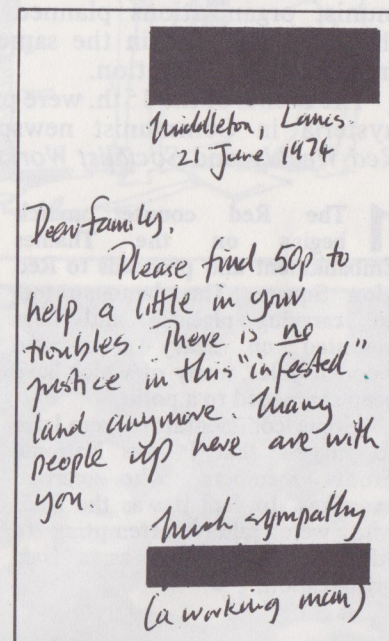 Middleton, Lancs.
21 June 1974
Dear family,
Please find 50p to
help a little in your
troubles. There is no
justice in this "infested"
land anymore. Many
people up here are with
you.
Much sympathy
(a working man)